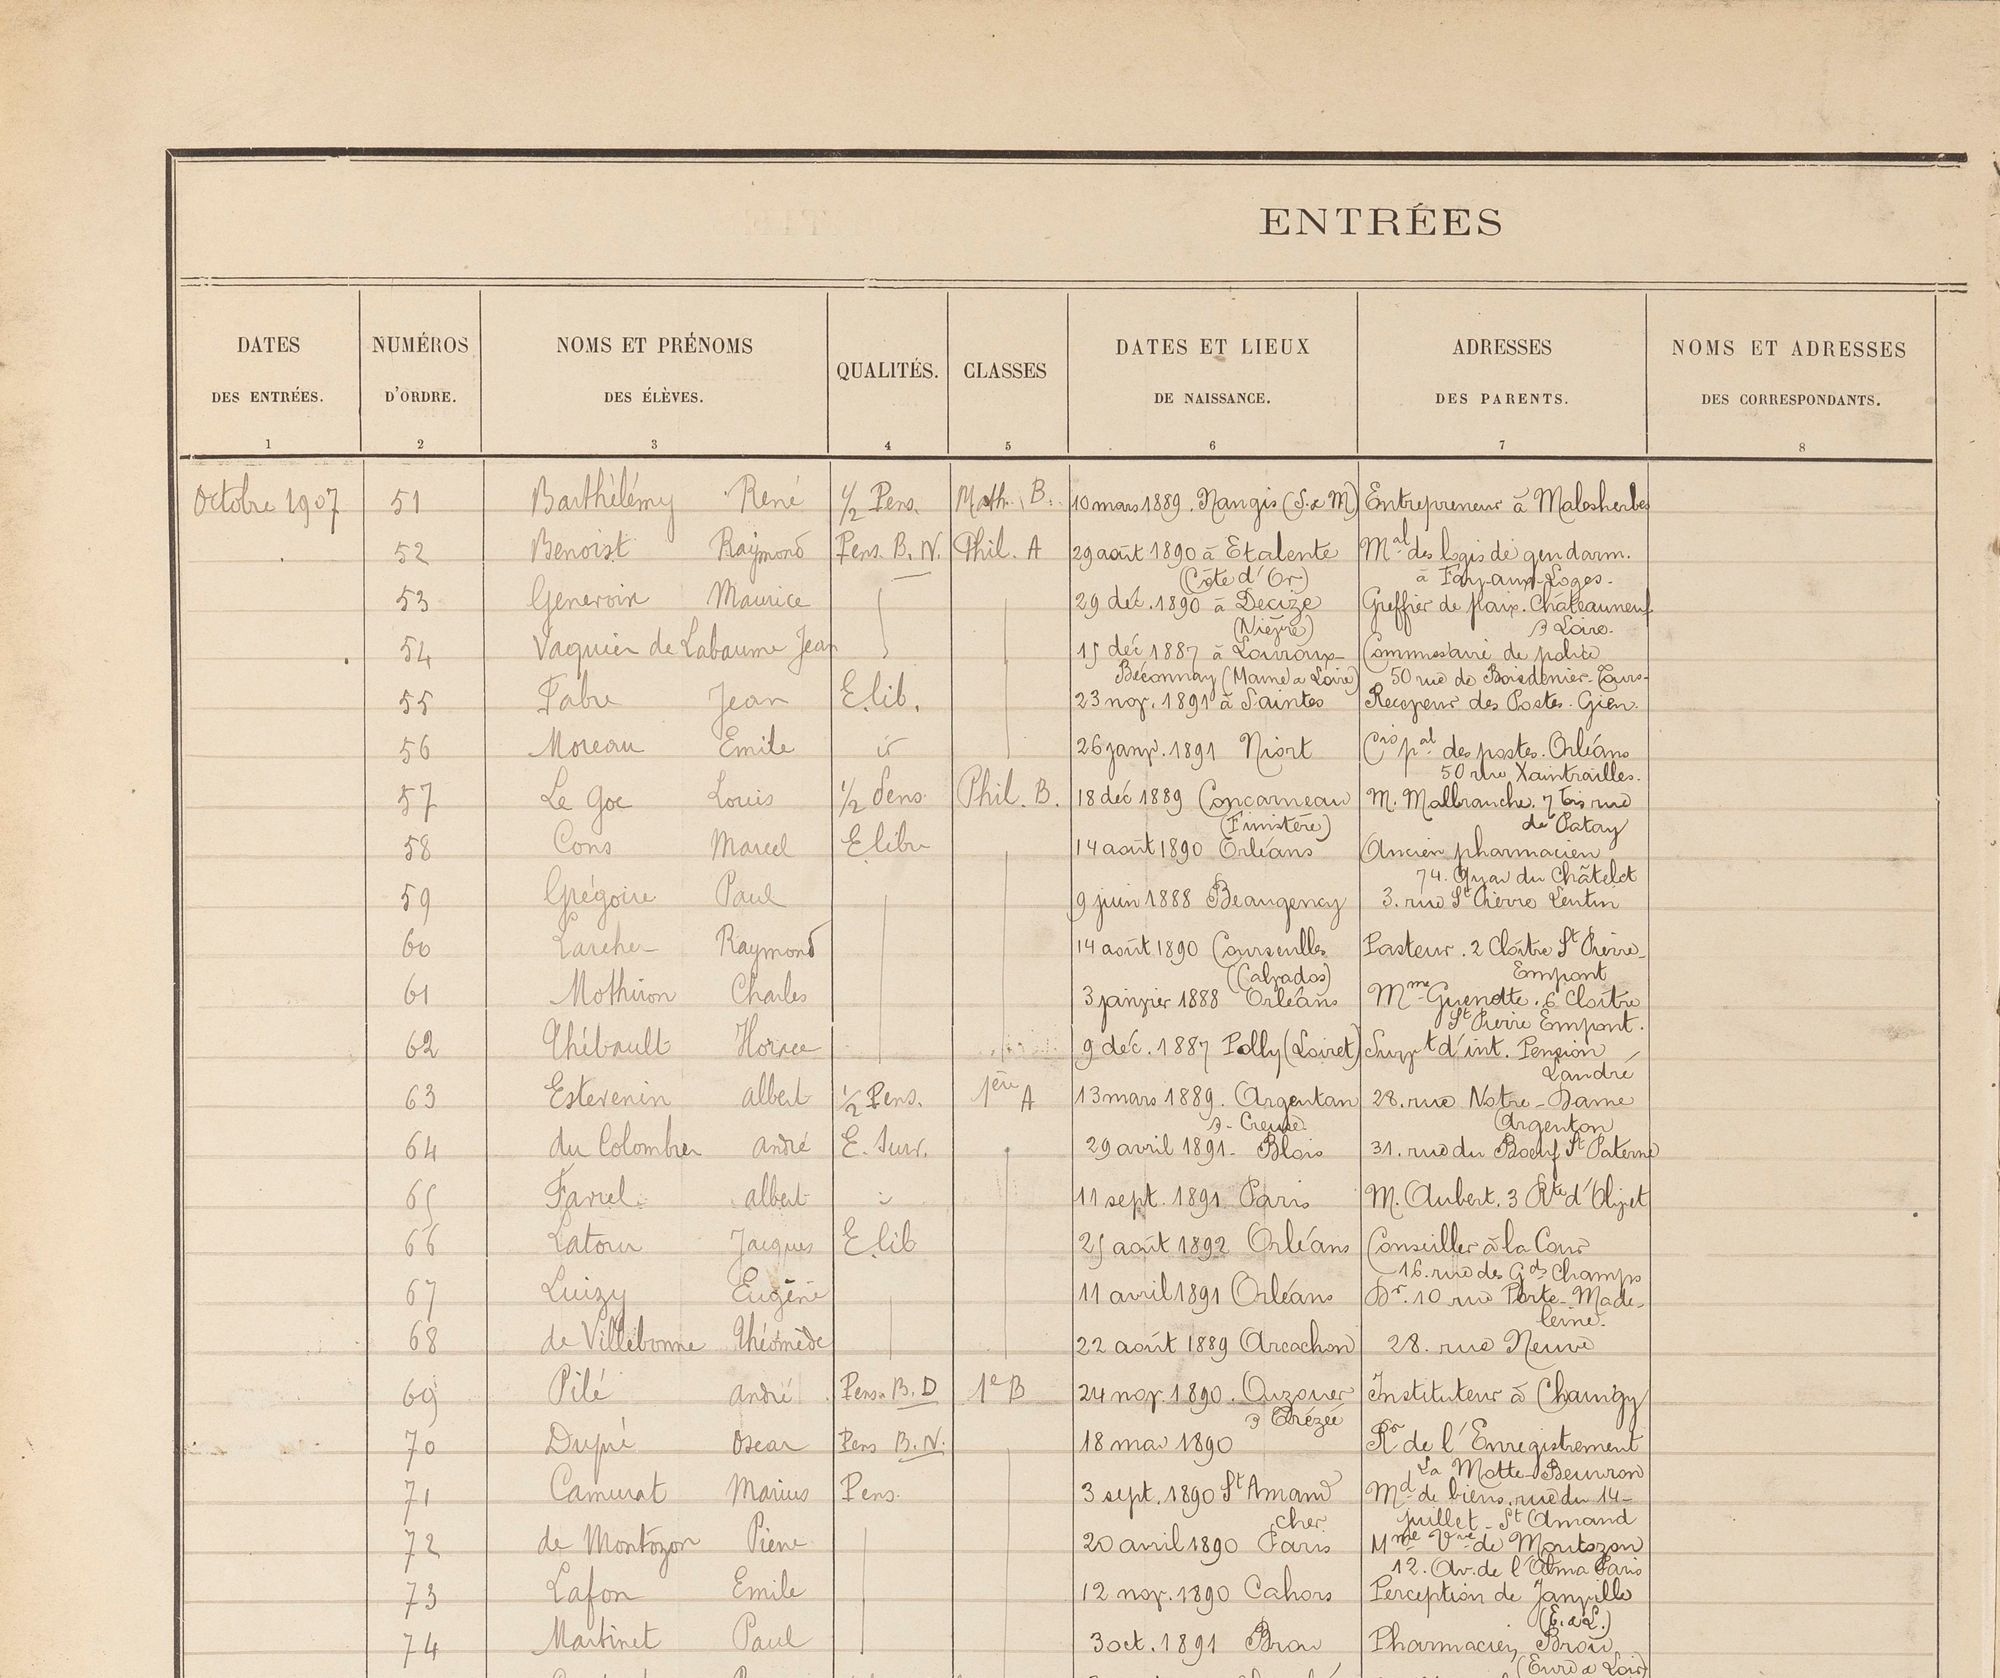 ENTRÉES
DATES DES ENTRÉES. 1
NUMÉROS D'ORDRE. 2
NOMS ET PRÉNOMS DES ÉLÈVES. 3
QUALITÉS. 4
CLASSES 5
DATES ET LIEUX DE NAISSANCE. 6
ADRESSES DES PARENTS. 7
NOMS ET ADRESSES DES CORRESPONDANTS. 8
Octobre 1907 51 Barthélémy René 1/2 Pens. Math. B. 10 mars 1889. Nangis (S. & M) Entrepreneur à Malesherbes
52 Benoist Raymond Pens. B. N. Phil. A 29 août 1890 à Etalente Mal des logis de gendarm.
(Côte d'Or) à Fay-aux-Loges.
53 Genevoix Maurice 29 déc. 1890 à Decize Greffier de paix. Châteauneuf
(Nièvre) s/ Loire.
54 Vaquier de Labaume Jean 15 déc 1887 à Louroux- Commissaire de police
Béconnay (Maine & Loire) 50 rue de Boisdenier-Tours-
55 Fabre Jean E. lib. 23 nov. 1891 à Saintes Receveur des Postes. Gien.
56 Moreau Emile id 26 janv. 1891 Niort Cis pal des postes. Orléans
50 rue Xaintrailles.
57 Le Goc Louis 1/2 Pens. Phil. B. 18 déc 1889 Concarneau M. Malbranche. 7 bis rue
(Finistère) de Patay
58 Cons Marcel E libre 14 août 1890 Orléans Ancien pharmacien
74. Quai du Châtelet
59 Grégoire Paul 9 juin 1888 Beaugency 3. rue St Pierre Lentin
60 Larcher Raymond 14 août 1890 Courseulles Pasteur. 2 Cloître St Pierre-
(Calvados) Empont
61 Mothiron Charles 3 janvier 1888 Orléans Mme Guenotte. 6 Cloître
St Pierre Empont.
62 Thébault Horace 9 déc. 1887 Polly (Loiret) Survt d'int. Pension
Landré
63 Estevenin Albert 1/2 Pens. 1ère A 13 mars 1889. Argentan 28. rue Notre-Dame
s- Creuse. Argenton
64 du Colombier André E. Surv. 29 avril 1891- Blois 31. rue du Boeuf St Paterne
65 Farrel Albert 11 sept. 1891 Paris M. Aubert. 3 Rte d'Olivet
66 Latour Jacques E. lib 25 août 1892 Orléans Conseiller à la Cour
16. rue des Gds Champs
67 Luizy Eugène 11 avril 1891 Orléans Dr. 10 rue Porte-Made-
leine.
68 de Villebonne Théomède 22 août 1889 Arcachon 28. rue Neuve
69 Pilé André Pens. B. D 1e B 24 nov. 1890. Ouzouer Instituteur à Chaingy
s/ Trézée
70 Dupré Oscar Pens B. N. 18 mai 1890 Rr de l'Enregistrement
La Motte-Beuvron
71 Camurat Marius Pens. 3 sept. 1890 St Amand Md de biens. rue du 14-
cher juillet- St Amand
72 de Montozon Pierre 20 avril 1890 Paris Mme Vve de Montozon
12. Av. de l'Alma Paris
73 Lafon Emile 12 nov. 1890 Cahors Perception de Janville
(E. & L.)
74 Martinet Paul 3 oct. 1891 Brou Pharmacien, Brou
(Eure & Loir)